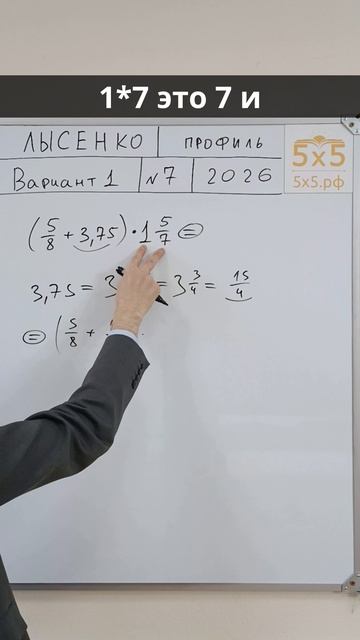 1*7 это 7 и
ЛЫСЕНКО ПРОФИЛЬ
Вариант 1 №7 2026
5x5
5x5.рф
(5/8 + 3,75) · 1 5/7 =
3,75 = 3 = 3 3/4 = 15/4
= (5/8 +